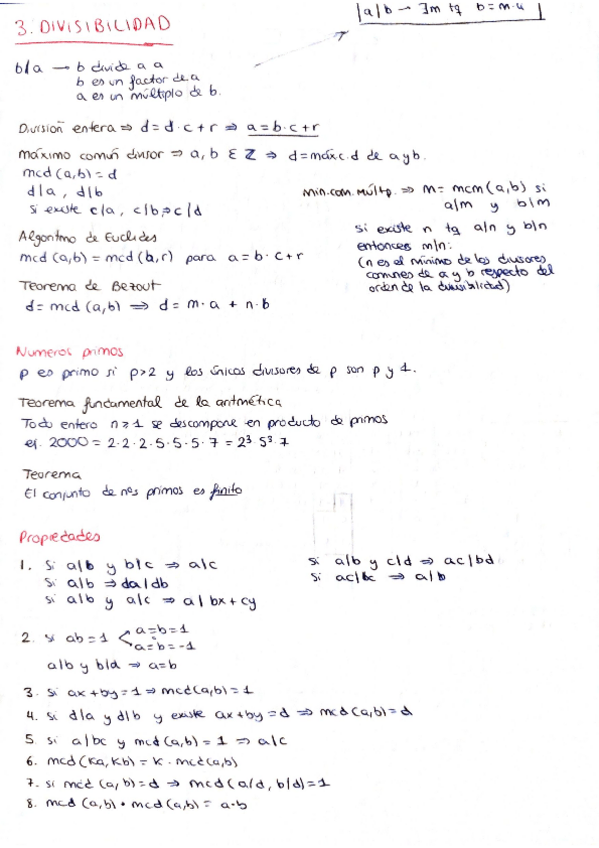 3. DIVISIBILIDAD
a/b → ∃m tq b=m·a
b/a → b divide a a
b es un factor de a
a es un múltiplo de b.
División entera ⇒ d=d·c+r ⇒ a=b·c+r
máximo común divisor ⇒ a, b ∈ Z ⇒ d=máx c.d de a y b.
mcd(a,b)=d
d/a, d/b
si existe c/a, c/b ⇒ c/d
min.com.múltp. ⇒ m=mcm(a,b) si
a/m y b/m
si existe n tq a/n y b/n
entonces m/n:
(n es el mínimo de los divisores
comunes de a y b respecto del
orden de la divisibilidad)
Algoritmo de Euclides
mcd(a,b)=mcd(b,r) para a=b·c+r
Teorema de Bezout
d=mcd(a,b) ⇒ d=m·a+n·b
Numeros primos
p es primo si p>2 y los únicos divisores de p son p y 1.
Teorema fundamental de la aritmética
Todo entero n≥1 se descompone en producto de primos
ej. 2000=2·2·2·5·5·5·7=2³·5³·7
Teorema
El conjunto de nos primos es finito
Propiedades
1. Si a/b y b/c ⇒ a/c
Si a/b ⇒ da/db
si a/b y a/c ⇒ a/bx+cy
si a/b y c/d ⇒ ac/bd
si ac/bc ⇒ a/b
2. si ab=1 a=b=1
a=b=-1
a/b y b/a ⇒ a=b
3. Si ax+by=1 ⇒ mcd(a,b)=1
4. Si d/a y d/b y existe ax+by=d ⇒ mcd(a,b)=d
5. Si a/bc y mcd(a,b)=1 ⇒ a/c
6. mcd(Ka,Kb)=K·mcd(a,b)
7. si mcd(a,b)=d ⇒ mcd(a/d, b/d)=1
8. mcd(a,b)·mcd(a,b)=a·b